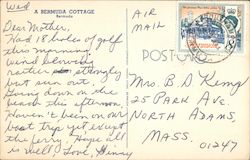 Wed
A BERMUDA COTTAGE
Bermuda
Dear Mother,
Had 18 holes of golf
this morning.
Wind blowing
rather strongly
but sun out.
Going down on the
beach this afternoon.
Haven't been on our
boat trip yet except
the ferry. Hope all
is well! Love,
AIR
MAIL
POSTCARD
Mrs. B. D. Keng
25 PARK AVE.
NORTH ADAMS,
MASS.
01247